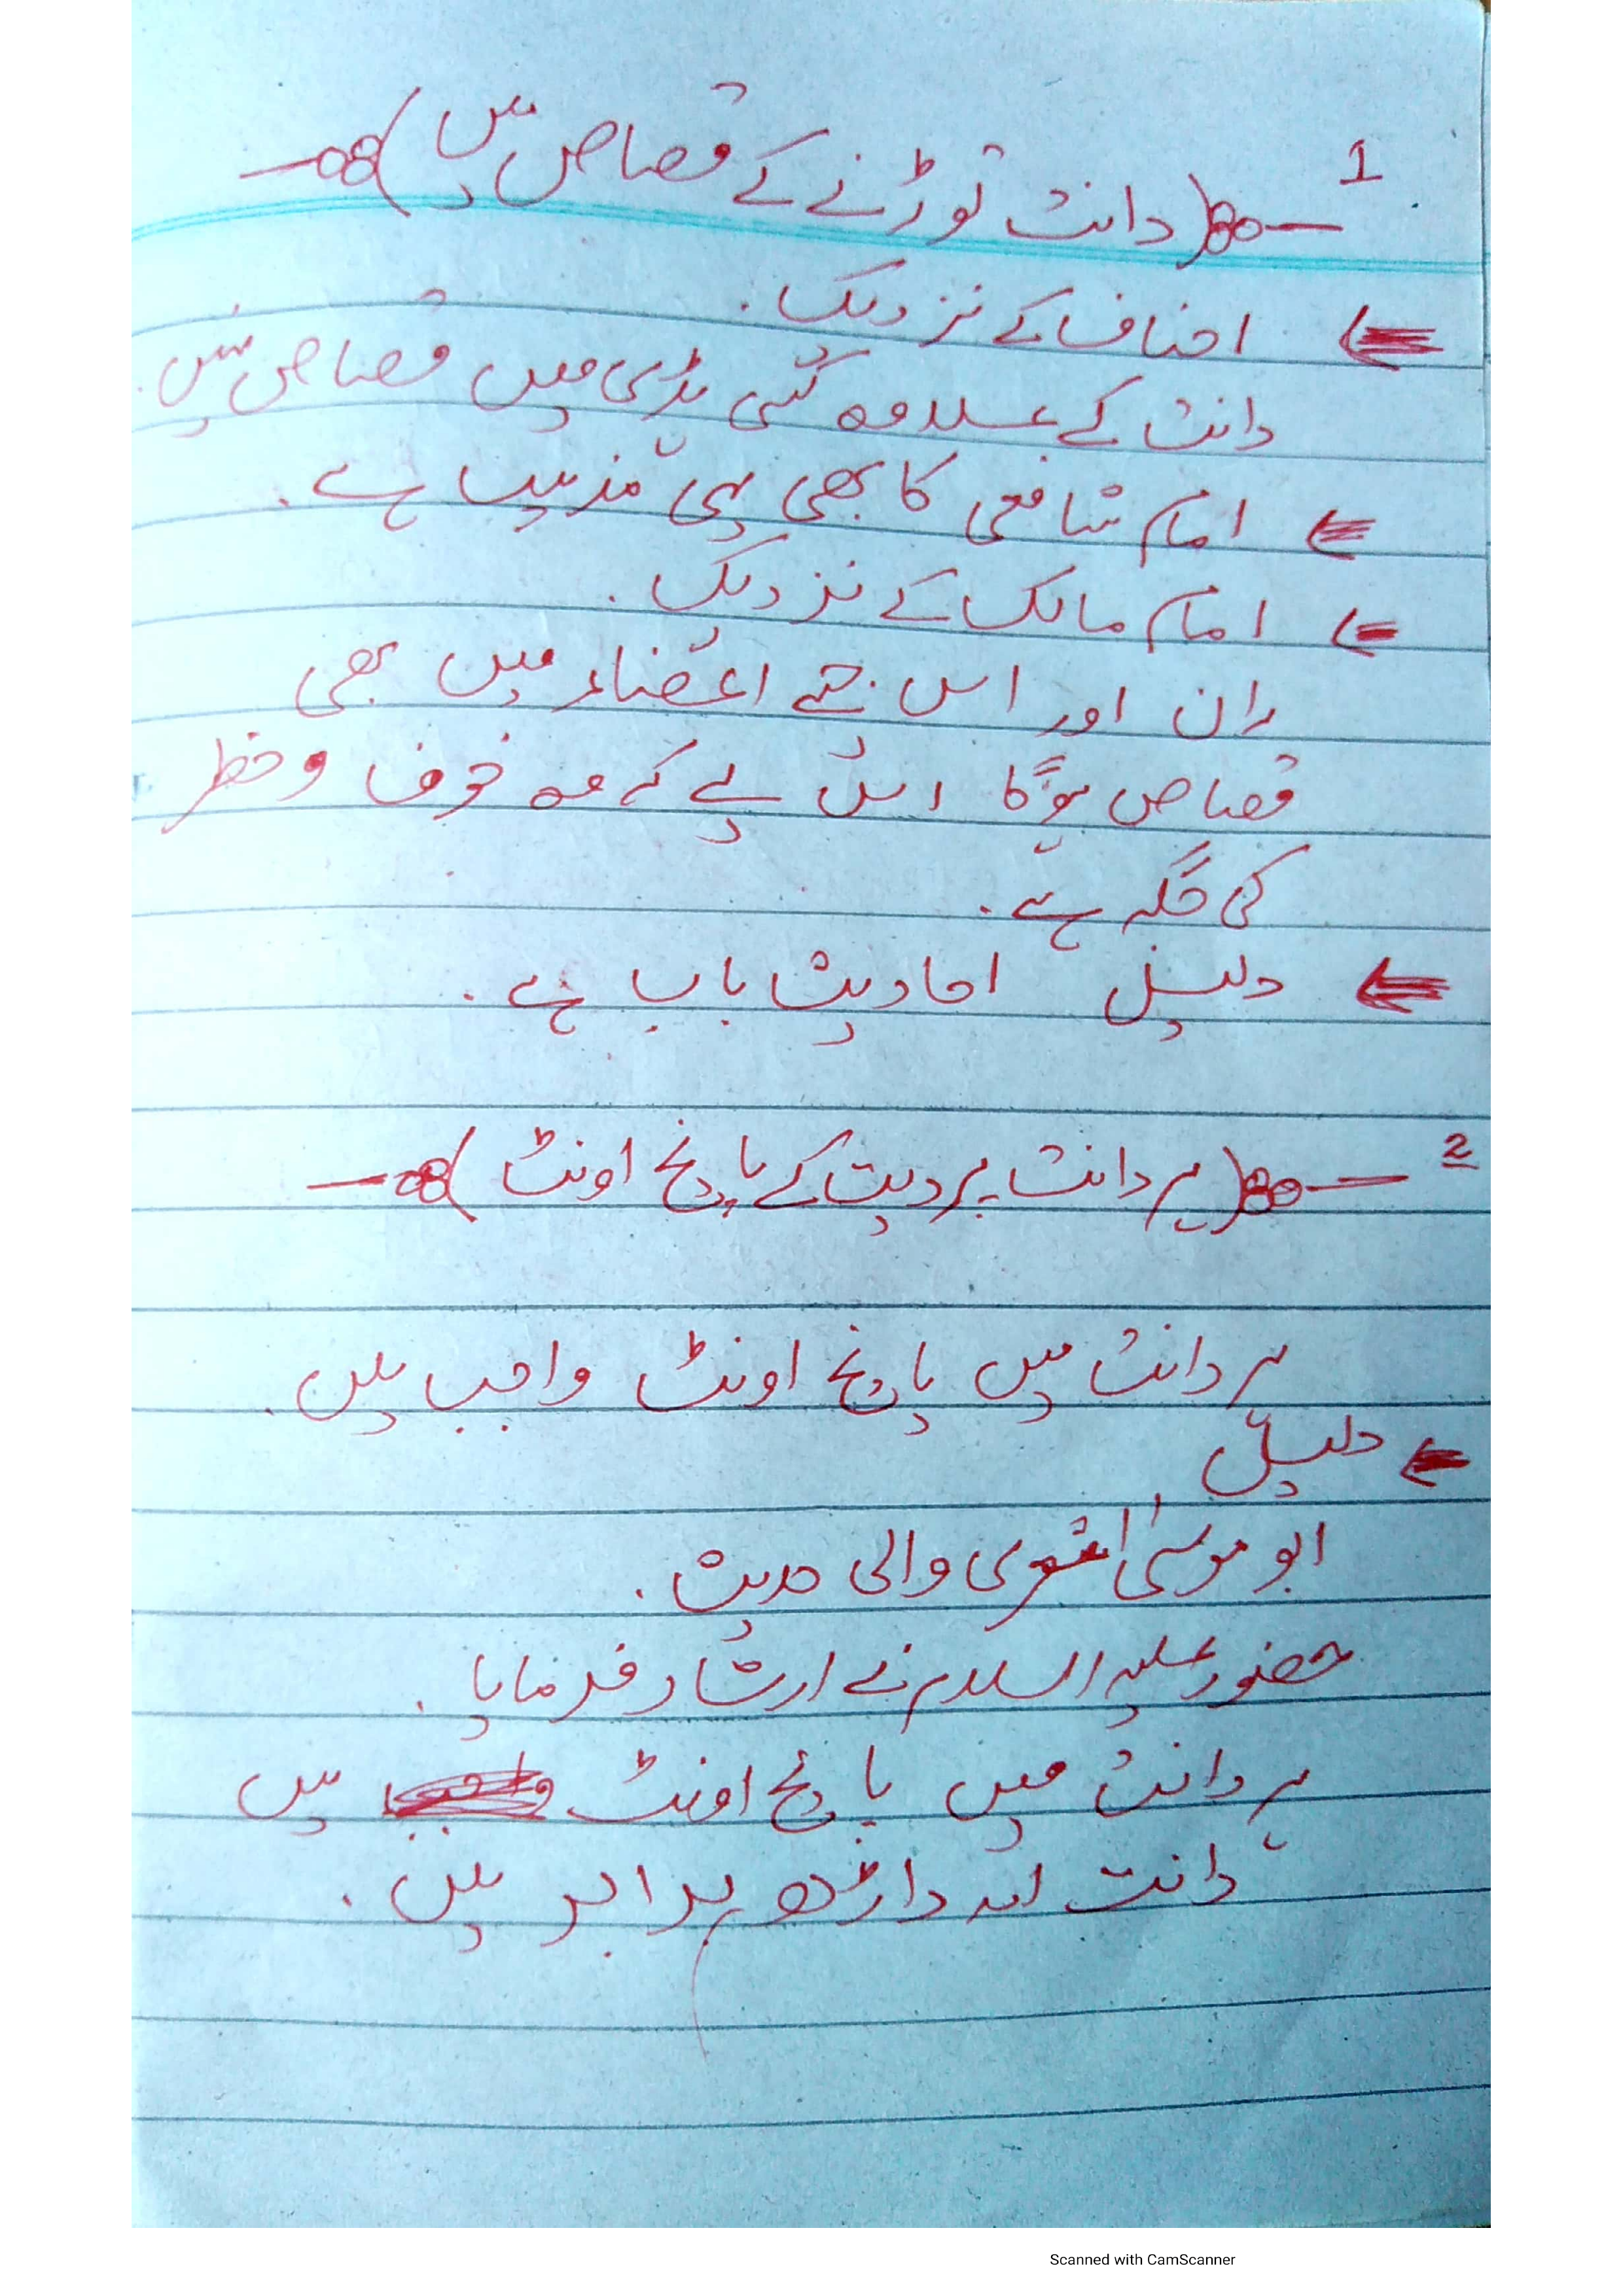 1
(دانت توڑنے کے قصاص میں)
احناف کے نزدیک۔
دانت کے علاوہ کسی ہڈی میں قصاص نہیں۔
امام شافعی کا بھی یہی مذہب ہے۔
امام مالک کے نزدیک۔
ران اور اس جیسے اعضاء میں بھی
قصاص ہوگا اس لیے کہ وہ خوف و خطر
کی جگہ ہے۔
دلیل احادیث باب ہے۔
2
(ہر دانت پر دیت کے پانچ اونٹ)
ہر دانت میں پانچ اونٹ واجب ہیں۔
دلیل
ابو موسیٰ اشعری والی حدیث۔
حضور علیہ السلام نے ارشاد فرمایا۔
ہر دانت میں پانچ اونٹ ہیں
دانت اور داڑھ برابر ہیں۔
Scanned with CamScanner